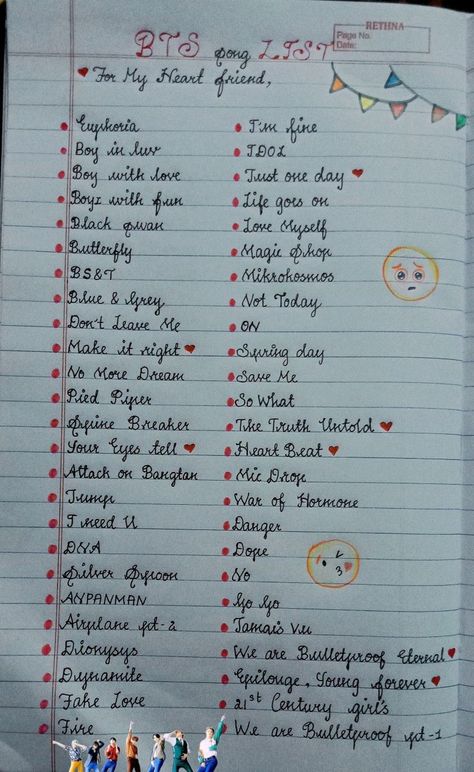 RETHNA
Page No.
Date:
BTS song LIST
For My Heart friend,
Euphoria
Boy in luv
Boy with love
Boyz with fun
Black swan
Butterfly
BS&T
Blue & Grey
Don't Leave Me
Make it right
No More Dream
Pied Piper
Spine Breaker
Your Eyes tell
Attack on Bangtan
Jump
I need U
DNA
Silver Spoon
ANPANMAN
Airplane pt-2
Dionysys
Dynamite
Fake Love
Fire
I'm fine
IDOL
Just one day
Life goes on
Love Myself
Magic Shop
Mikrokosmos
Not Today
ON
Spring day
Save Me
So What
The Truth Untold
Heart Beat
Mic Drop
War of Hormone
Danger
Dope
No
Go Go
Jamais vu
We are Bulletproof Eternal
Epilouge, Young forever
21st Century girl's
We are Bulletproof pt-1